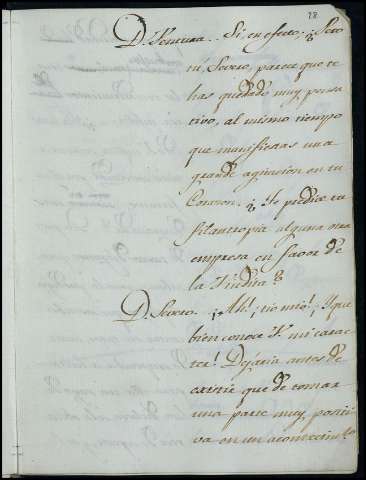 28
D. Ventura.. Si, en efecto; ¿
tú, Severo, parece que te
has quedado muy pensa
tivo, al mismo tiempo
que manifiestas una
grande agitacion en tu
Corazon. ¿Te predice tu
filantropia alguna otra
empresa en favor de
la Viudita?
D. Severo. ¡Ah! ¡tio mio! ¡Y que
bien conoce V. mi carac
ter! Dejaria antes de
existir que de tomar
una parte muy positi
va en un acontecim.to